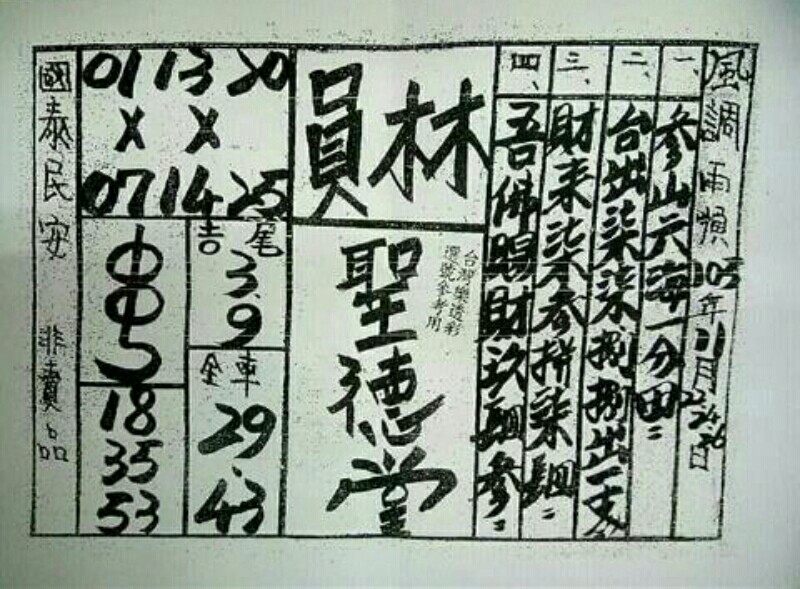 風調雨順 105年01月22.24.26日
一、參山六海一分田=
二、台出柒柒捌捌出一支
三、財來柒參拼柒=
四、吾佛賜財玖參=
員林
聖德堂
台灣樂透彩
選號參考用
01 13 20
X X
07 14 25
吉尾
3.9
全車
29.43
18
35
53
國泰民安 非賣品